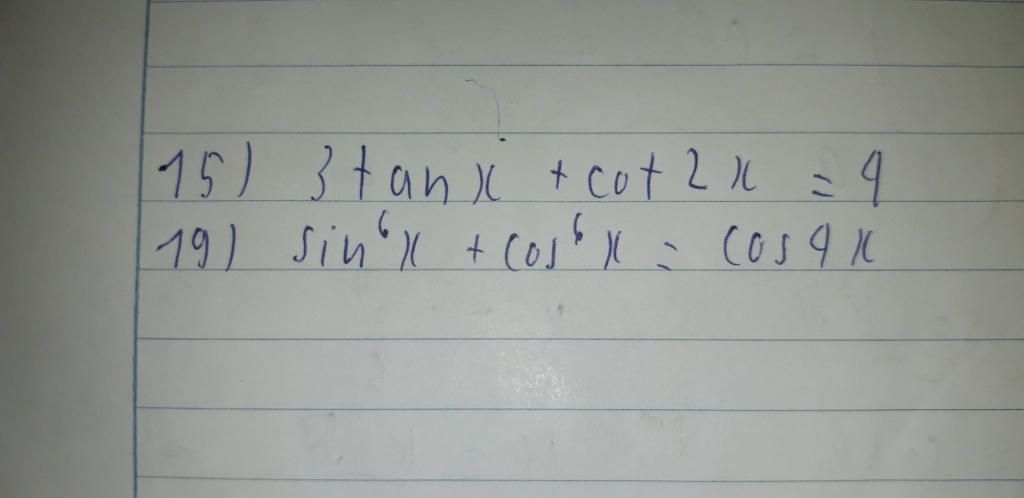 15) 3tanx + cot2x = 4
19) sin⁶x + cos⁶x = cos4x